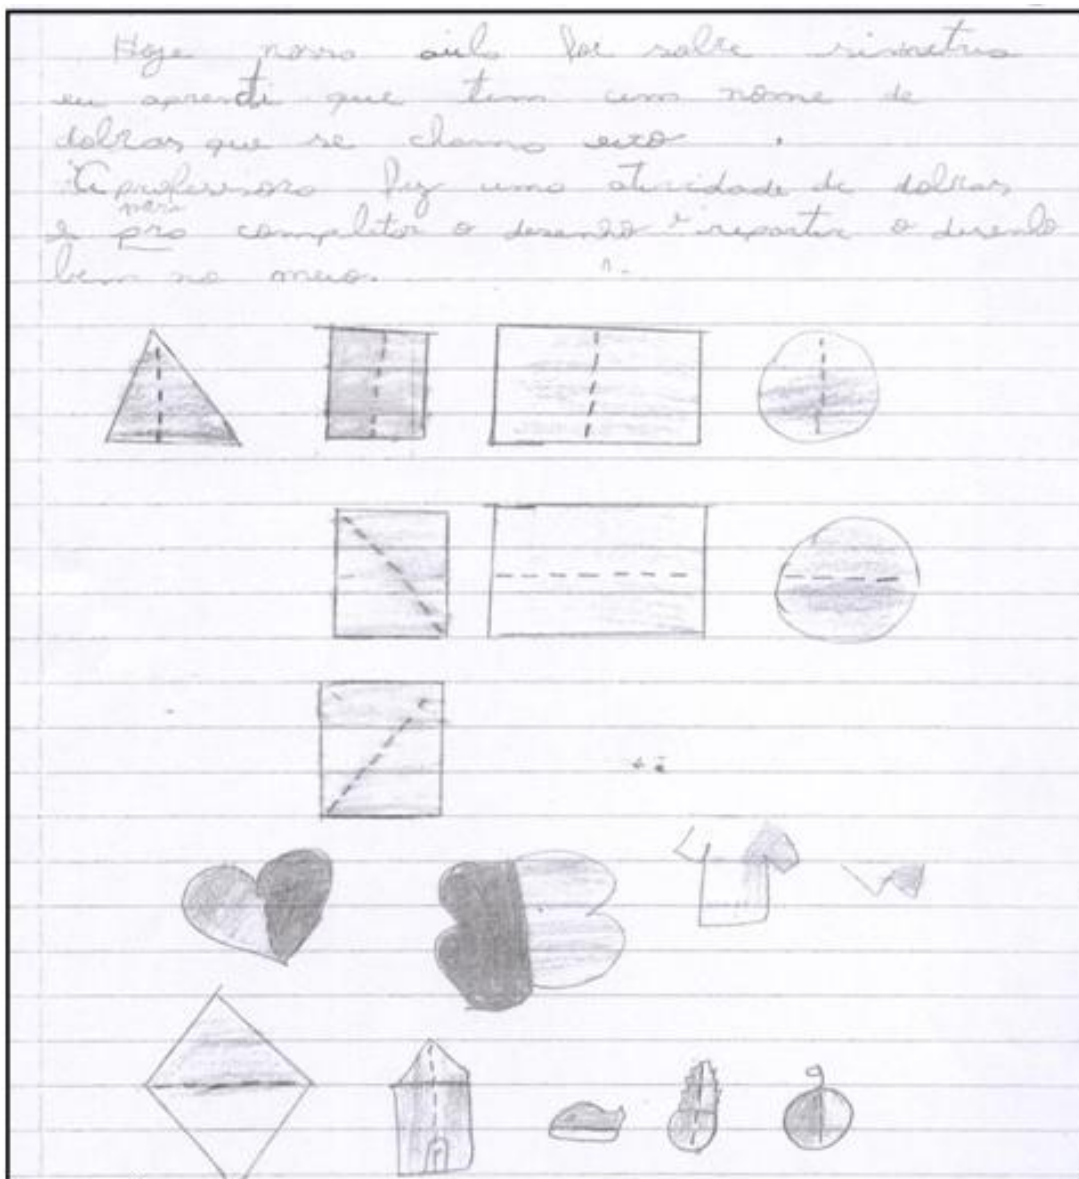 Hoje nossa aula foi sobre simetria
eu aprendi que tem um nome de
dobras que se chama eixo .
A professora fez uma atividade de dobras
para
e pra completar o desenho e repartir o desenho
bem no meio.